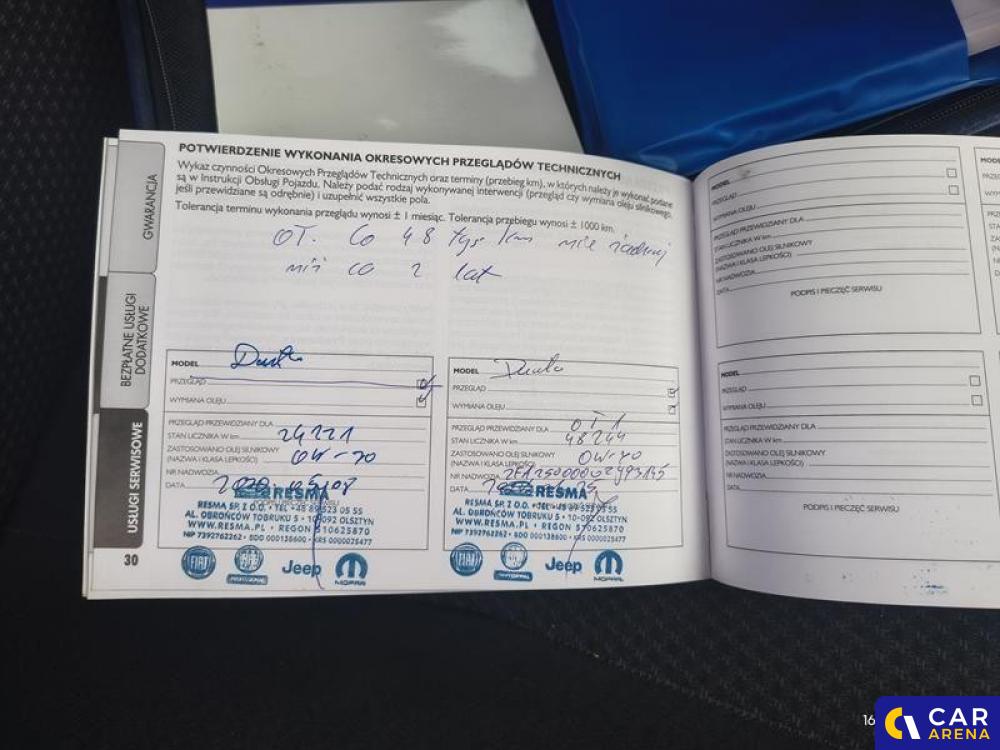 POTWIERDZENIE WYKONANIA OKRESOWYCH PRZEGLĄDÓW TECHNICZNYCH
Wykaz czynności Okresowych Przeglądów Technicznych oraz terminy (przebieg km), w których należy je wykonać podane
są w Instrukcji Obsługi Pojazdu. Należy podać rodzaj wykonywanej interwencji (przegląd czy wymiana oleju silnikowego,
jeśli przewidziane są odrębnie) i uzupełnić wszystkie pola.
Tolerancja terminu wykonania przeglądu wynosi ± 1 miesiąc. Tolerancja przebiegu wynosi ± 1000 km.
OT. Co 48 tys km nie rzadziej
niż co 2 lat
GWARANCJA
BEZPŁATNE USŁUGI
DODATKOWE
USŁUGI SERWISOWE
30
MODEL
PRZEGLĄD
WYMIANA OLEJU
PRZEGLĄD PRZEWIDZIANY DLA
STAN LICZNIKA W km 24221
ZASTOSOWANO OLEJ SILNIKOWY
(NAZWA I KLASA LEPKOŚCI) 0W-20
NR NADWOZIA
DATA
RESMA
RESMA SP. Z O.O. • TEL +48 89 523 05 55
AL. OBROŃCÓW TOBRUKU 5 • 10-092 OLSZTYN
WWW.RESMA.PL • REGON 510625870
NIP 7392762262 • BDO 000138600 • KRS 0000025477
FIAT
FIAT PROFESSIONAL
Jeep
MOPAR
MODEL
PRZEGLĄD
WYMIANA OLEJU
PRZEGLĄD PRZEWIDZIANY DLA OT1
STAN LICZNIKA W km 48244
ZASTOSOWANO OLEJ SILNIKOWY
(NAZWA I KLASA LEPKOŚCI) 0W-20
NR NADWOZIA
DATA
RESMA
RESMA SP. Z O.O. • TEL +48 89 523 05 55
AL. OBROŃCÓW TOBRUKU 5 • 10-092 OLSZTYN
WWW.RESMA.PL • REGON 510625870
NIP 7392762262 • BDO 000138600 • KRS 0000025477
FIAT
Jeep
MOPAR
MODEL
PRZEGLĄD
WYMIANA OLEJU
PRZEGLĄD PRZEWIDZIANY DLA
STAN LICZNIKA W km
ZASTOSOWANO OLEJ SILNIKOWY
(NAZWA I KLASA LEPKOŚCI)
NR NADWOZIA
DATA
PODPIS I PIECZĘĆ SERWISU
MODEL
PRZEGLĄD
WYMIANA OLEJU
PRZEGLĄD PRZEWIDZIANY DLA
STAN LICZNIKA W km
ZASTOSOWANO OLEJ SILNIKOWY
(NAZWA I KLASA LEPKOŚCI)
NR NADWOZIA
DATA
PODPIS I PIECZĘĆ SERWISU
16
CAR
ARENA